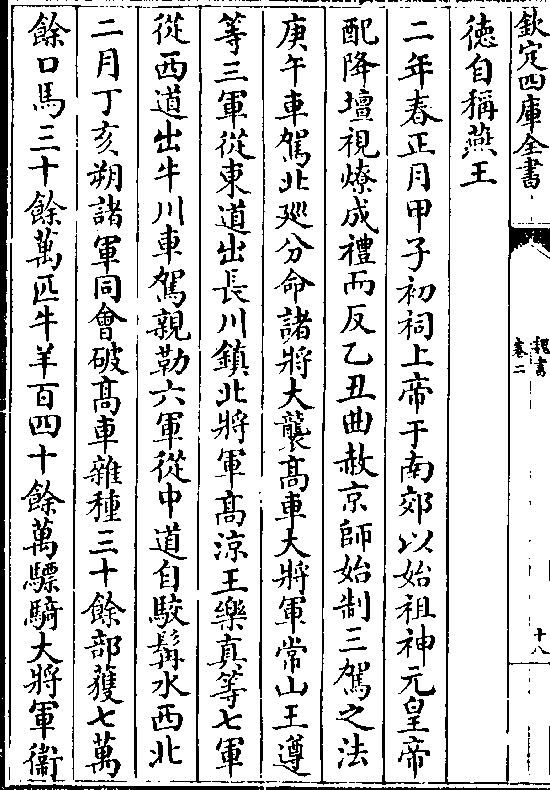 欽定四庫全書
魏書
卷二
十八
徳自稱燕王
二年春正月甲子初祠上帝于南郊以始祖神元皇帝
配降壇視燎成禮而反乙丑曲赦京師始制三駕之法
庚午車駕北廵分命諸將大襲髙車大將軍常山王遵
等三軍從東道出長川鎮北將軍髙涼王樂真等七軍
從西道出牛川車駕親勒六軍從中道自駮髯水西北
二月丁亥朔諸軍同會破髙車雜種三十餘部獲七萬
餘口馬三十餘萬匹牛羊百四十餘萬驃騎大將軍衞